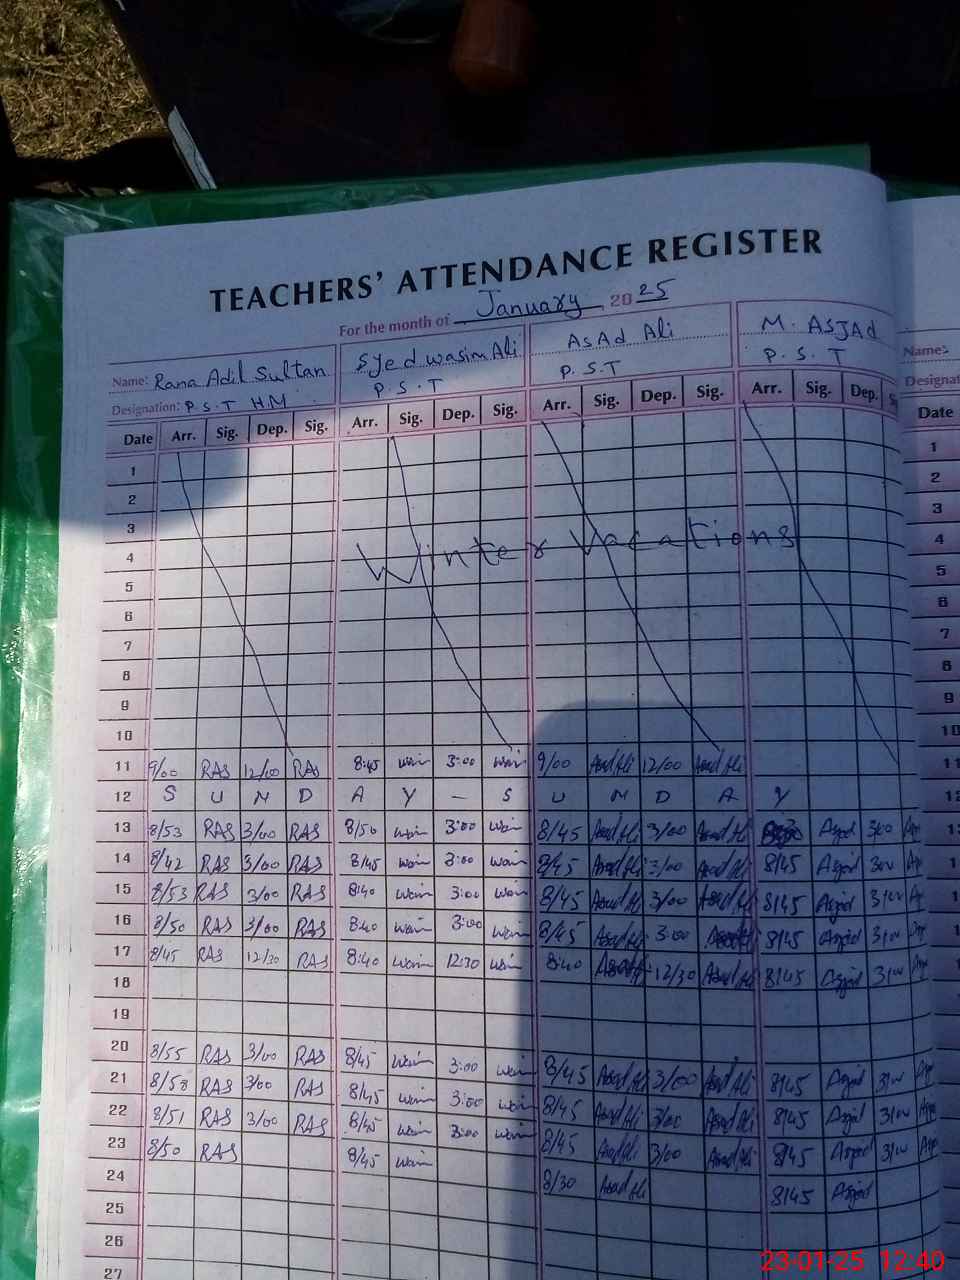 TEACHERS' ATTENDANCE REGISTER
For the month of January 2025
Name: Rana Adil Sultan Syed wasim Ali AsAd Ali M. ASJAd Name:
Designation: P.S.T H.M P.S.T P.S.T P.S.T Designat
Date Arr. Sig. Dep. Sig. Arr. Sig. Dep. Sig. Arr. Sig. Dep. Sig. Arr. Sig. Dep. S Date
1 1
2 2
3 3
4 Winter Vacations 4
5 5
6 6
7 7
8 8
9 9
10 10
11 9/00 RAS 12/00 RAS 8:45 wasim 3:00 wasim 9/00 Asad Ali 12/00 Asad Ali 11
12 S U N D A Y — S U N D A Y 12
13 8/53 RAS 3/00 RAS 8/50 wasim 3:00 wasim 8/45 Asad Ali 3/00 Asad Ali Asjad 3/00
14 8/42 RAS 3/00 RAS 8/45 wasim 3:00 wasim 8/45 Asad Ali 3/00 Asad Ali 8/45 Asjad 3/00
15 8/53 RAS 3/00 RAS 8:40 wasim 3:00 wasim 8/45 Asad Ali 3/00 Asad Ali 8/45 Asjad 3/00
16 8/50 RAS 3/00 RAS 8:40 wasim 3:00 wasim 8/45 Asad Ali 3:00 8/45 Asjad 3/00
17 8/45 RAS 12/30 RAS 8:40 wasim 12:30 wasim 8:40 Asad Ali 12/30 Asad Ali 8/45 Asjad 3/00
18
19
20 8/55 RAS 3/00 RAS 8/45 wasim 3:00 wasim 8/45 Asad Ali 3/00 Asad Ali 8/45 Asjad 3/00
21 8/58 RAS 3/00 RAS 8/45 wasim 3:00 wasim 8/45 Asad Ali 3/00 Asad Ali 8/45 Asjad 3/00
22 8/51 RAS 3/00 RAS 8/45 wasim 3:00 wasim 8/45 Asad Ali 3/00 Asad Ali 8/45 Asjad 3/00
23 8/50 RAS 8/45 wasim 8/30 Asad Ali 8/45 Asjad
24
25
26
27
23-01-25 12:40